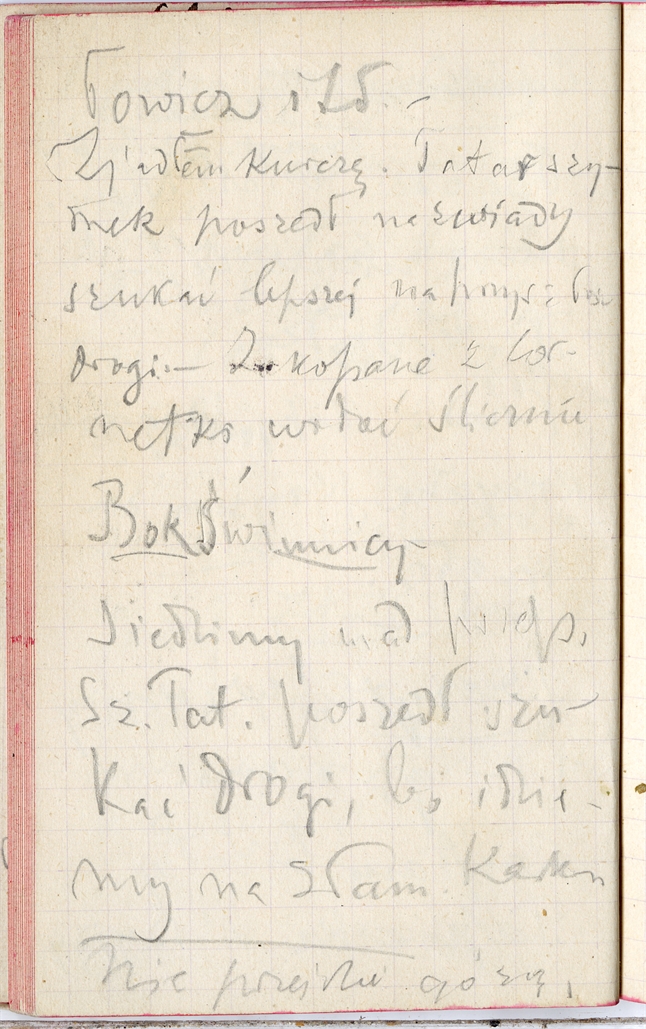 Łowicz i Łd. –
Zjadłem kurczę. Tatar szy-
nek poszedł na zwiady
szukać lepszej
drogi. – Zakopane z lor-
netką widać ślicznie
Bok Świnnicy
Siedzimy nad
Sz. Tat. poszedł szu-
kać drogi, bo idzie-
my na złam. kark
Nie górą,